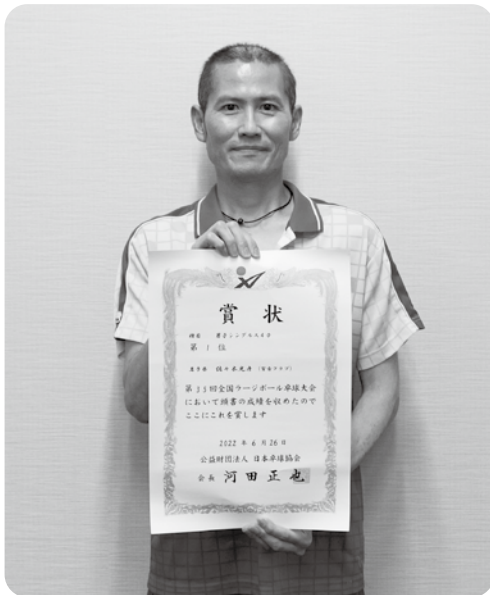 賞状
種目 男子シングルス40
第 1 位
第33回全国ラージボール卓球大会
において頭書の成績を収めたので
ここにこれを賞します
2022 年 6 月 26 日
公益財団法人 日本卓球協会
会長 河田正也